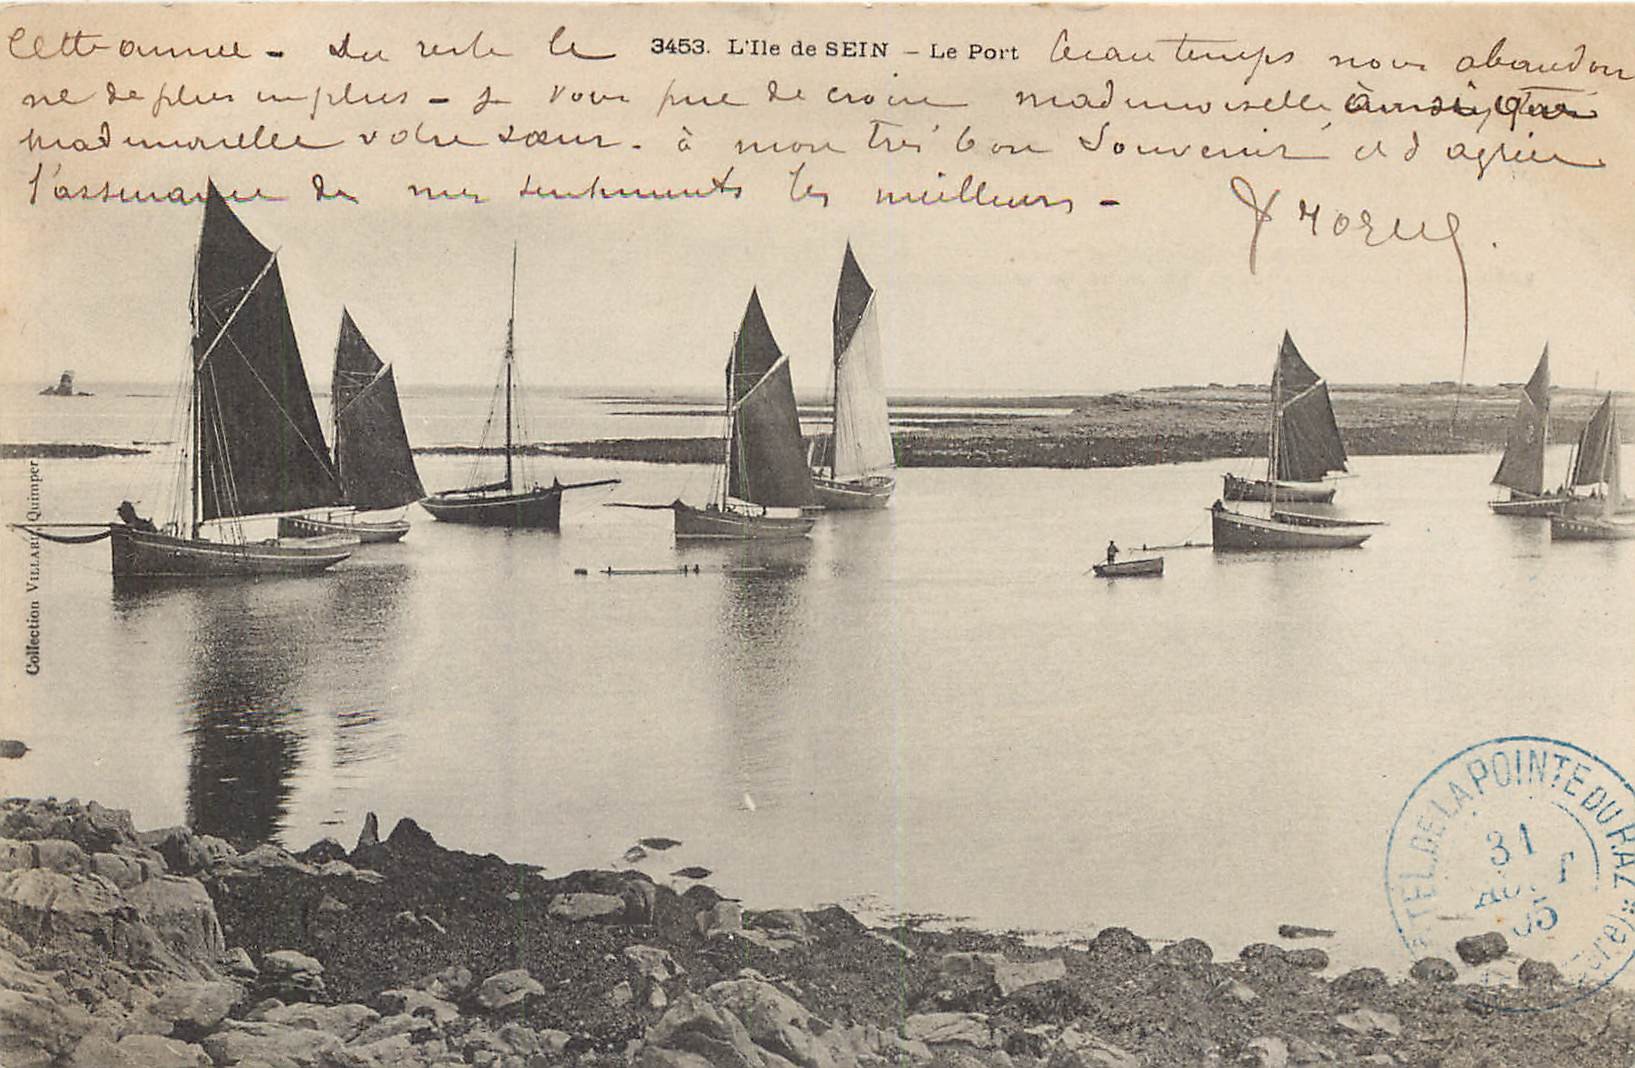 Cette année - Du reste le 3453. L'Ile de SEIN - Le Port beau temps nous abandon
ne de plus en plus - Je vous prie de croire mademoiselle, ainsi que
mademoiselle votre sœur - à mon très bon souvenir et d'agréer
l'assurance de mes sentiments les meilleurs -
Collection VILLARD Quimper
TEL DE LA POINTE DU RAZ
31
AOUT
05